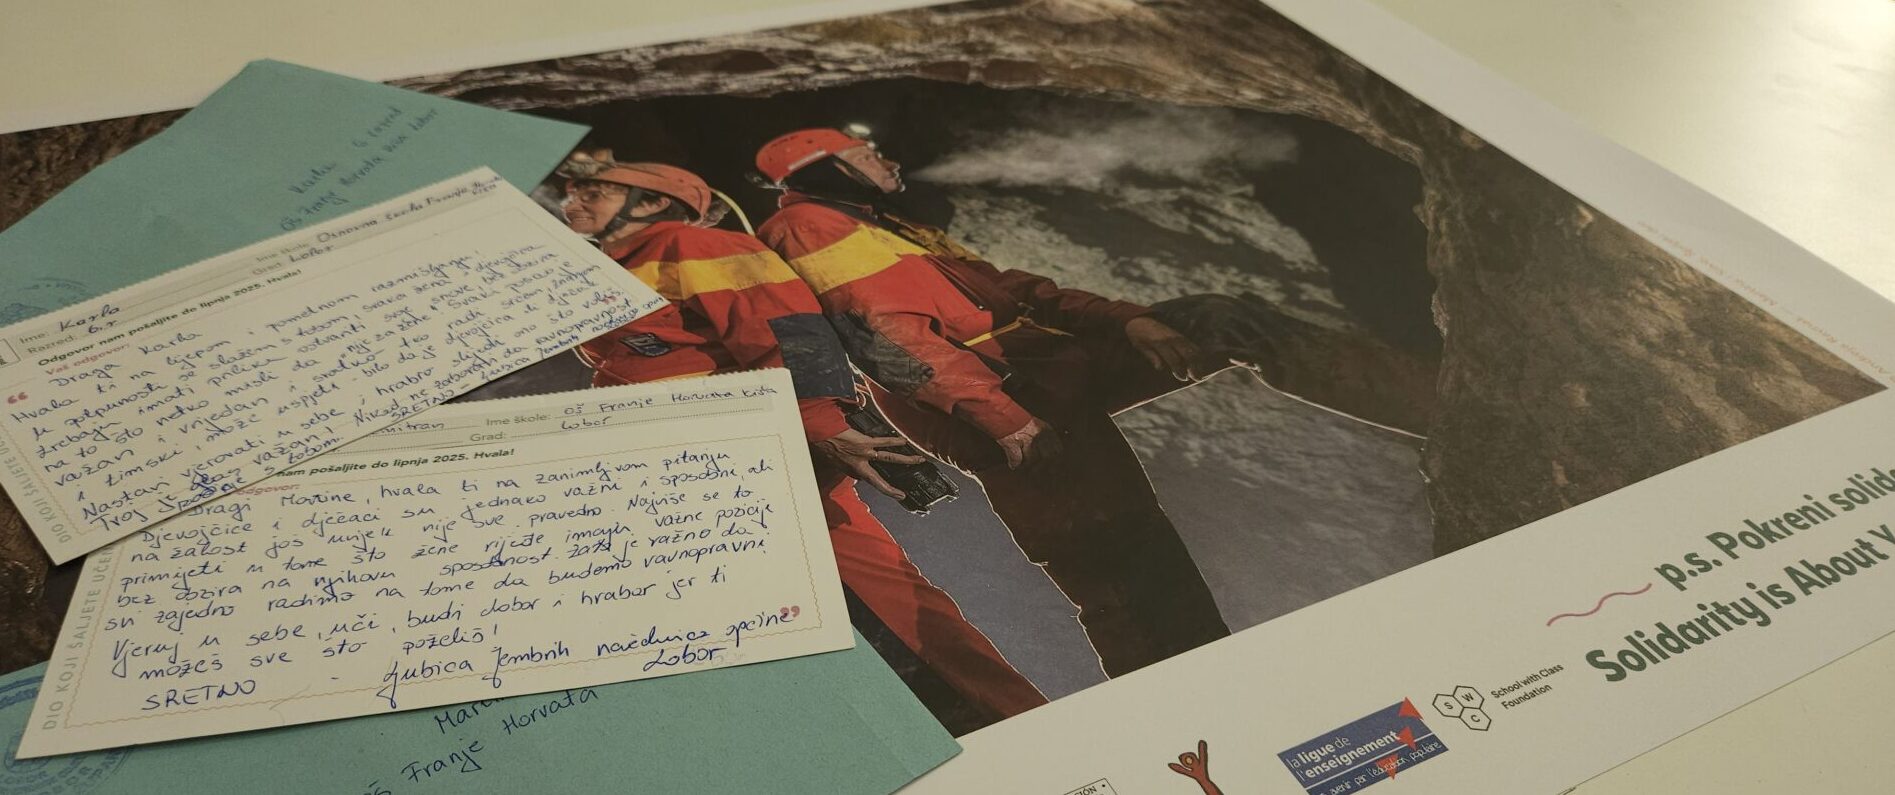 Karla 6 razred
OŠ Franje Horvata Kiša Lobor
Ime: Karla
Ime škole: Osnovna škola Franje Horvata Kiša
Razred: 6.r
Grad: Lobor
Odgovor nam pošaljite do lipnja 2025. Hvala!
Vaš odgovor:
“ Draga Karla
Hvala ti na lijepom i pametnom razmišljanju.
U potpunosti se slažem s tobom, svaka žena i djevojčica
trebaju imati priliku ostvariti svoje snove bez obzira
na to što netko misli da "nije za žene". Svaki posao je
važan i vrijedan i svatko tko radi srčan,
i timski, može uspjeti bilo da je djevojčica ili dječak
Nastavi vjerovati u sebe i hrabro slijedi ono što voliš. ”
Tvoj glas je važan! Nikad ne zaboravi da ravnopravnost
SRETNO – Ljubica Jembrih
DIO KOJI ŠALJETE UČE
Ime škole: OŠ Franje Horvata Kiša
Grad: Lobor
nam pošaljite do lipnja 2025. Hvala!
odgovor:
Dragi Martine, hvala ti na zanimljivom pitanju
Djevojčice i dječaci su jednako važni i sposobni, ali
na žalost još uvijek nije sve pravedno. Najviše se to
primijeti u tome što žene rijeđe imaju važne pozicije
bez obzira na njihovu sposobnost. Zato je važno da
svi zajedno radimo na tome da budemo ravnopravni.
Vjeruj u sebe, uči, budi dobar i hrabar jer ti
možeš sve što poželiš!
SRETNO - Ljubica Jembrih načelnica općine ”
Lobor
DIO KOJI ŠALJETE UČE
Franje Horvata
p.s. Pokreni solida
Solidarity is About Y
la ligue de
l'enseignement
avenir par l'éducation populaire
S W C
School with Class
Foundation